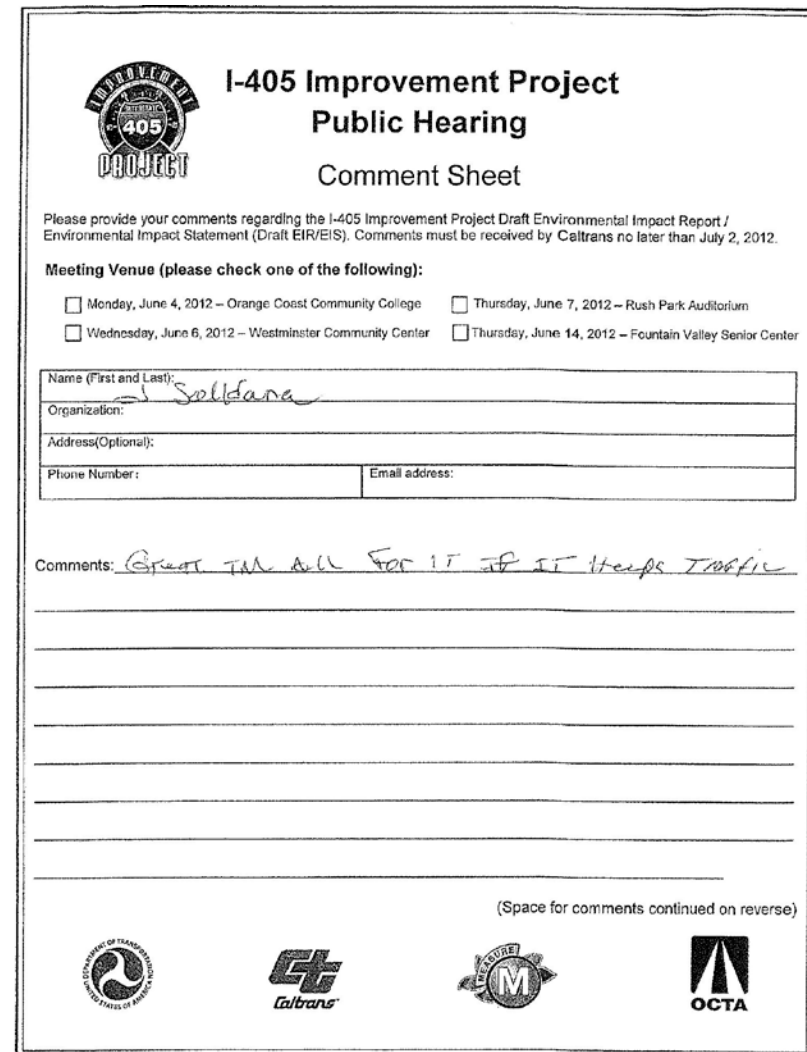 IMPROVEMENT
INTERSTATE
405
PROJECT
I-405 Improvement Project
Public Hearing
Comment Sheet
Please provide your comments regarding the I-405 Improvement Project Draft Environmental Impact Report /
Environmental Impact Statement (Draft EIR/EIS). Comments must be received by Caltrans no later than July 2, 2012.
Meeting Venue (please check one of the following):
Monday, June 4, 2012 – Orange Coast Community College
Thursday, June 7, 2012 – Rush Park Auditorium
Wednesday, June 6, 2012 – Westminster Community Center
Thursday, June 14, 2012 – Fountain Valley Senior Center
Name (First and Last): J Solldana
Organization:
Address(Optional):
Phone Number:
Email address:
Comments: Great I'M All For IT IF IT Helps Traffic
(Space for comments continued on reverse)
DEPARTMENT OF TRANSPORTATION
UNITED STATES OF AMERICA
Caltrans
MEASURE
M
OCTA